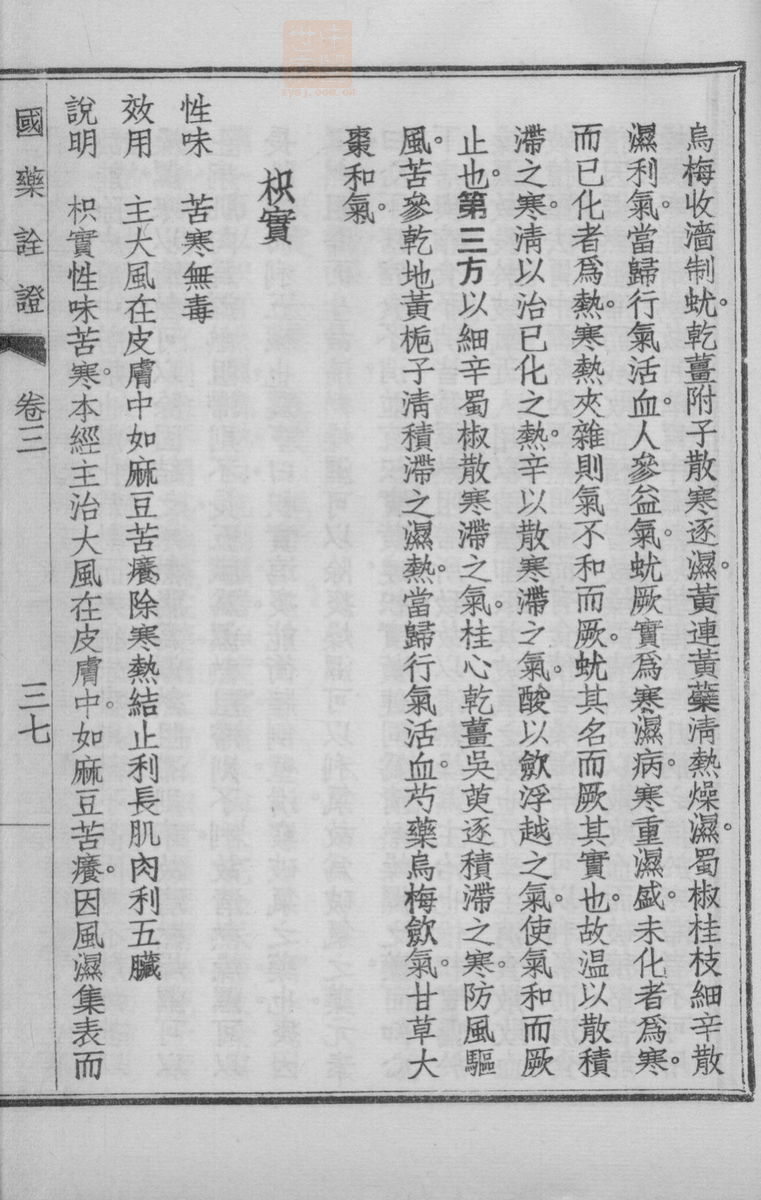 烏梅收濇制蚘。乾薑附子散寒逐濕。黃連黃蘗淸熱燥濕。蜀椒桂枝細辛散
濕利氣。當歸行氣活血。人參益氣。蚘厥實爲寒濕病。寒重濕盛。未化者爲寒。
而已化者爲熱。寒熱夾雜則氣不和而厥。蚘其名而厥其實也。故温以散積
滯之寒。淸以治已化之熱。辛以散寒滯之氣。酸以斂浮越之氣。使氣和而厥
止也。第三方以細辛蜀椒散寒滯之氣。桂心乾薑吳萸逐積滯之寒。防風驅
風。苦參乾地黃梔子淸積滯之濕熱。當歸行氣活血。芍藥烏梅斂氣。甘草大
棗和氣。
枳實
性味　苦寒無毒
效用　主大風在皮膚中如麻豆苦癢除寒熱結止利長肌肉利五臟
說明　枳實性味苦寒。本經主治大風在皮膚中。如麻豆苦癢。因風濕集表而
國藥詮證　卷三　三七